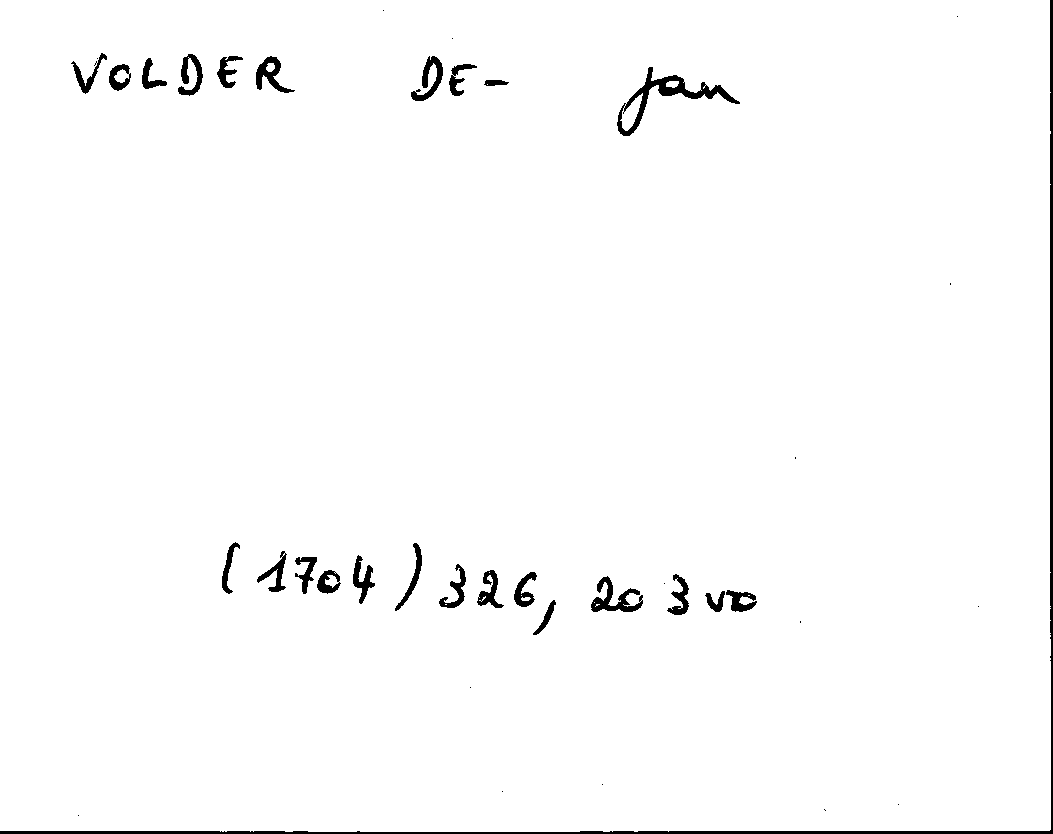 VOLDER DE- Jan
(1704) 326, 203 vo